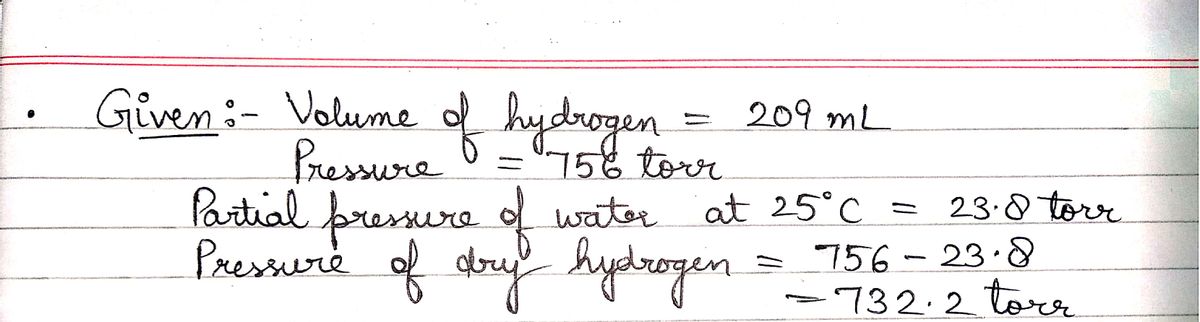 • Given :- Volume of hydrogen = 209 mL
Pressure = 756 torr
Partial pressure of water at 25°C = 23.8 torr
Pressure of dry hydrogen = 756 - 23.8
= 732.2 torr